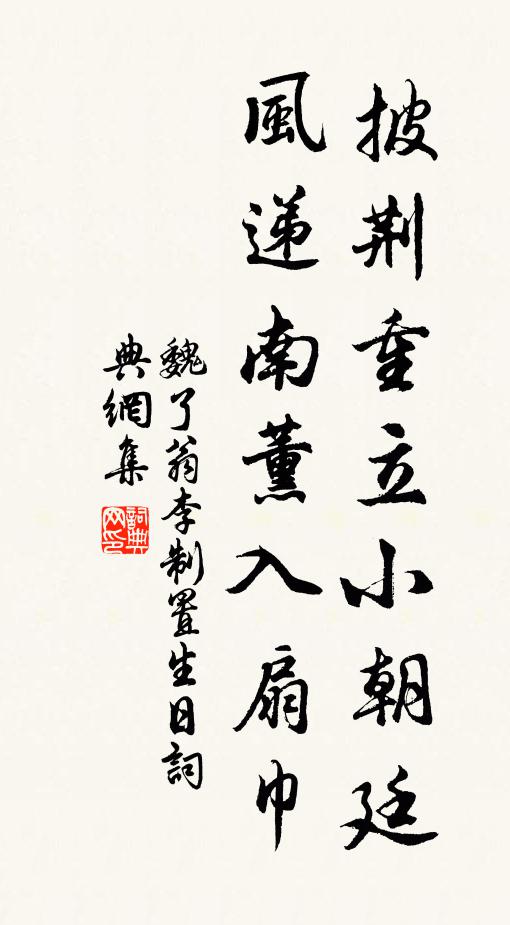 披荆重立小朝廷
風递南薰入扇巾
魏了翁李制置生日詞
典網集
詞典网印